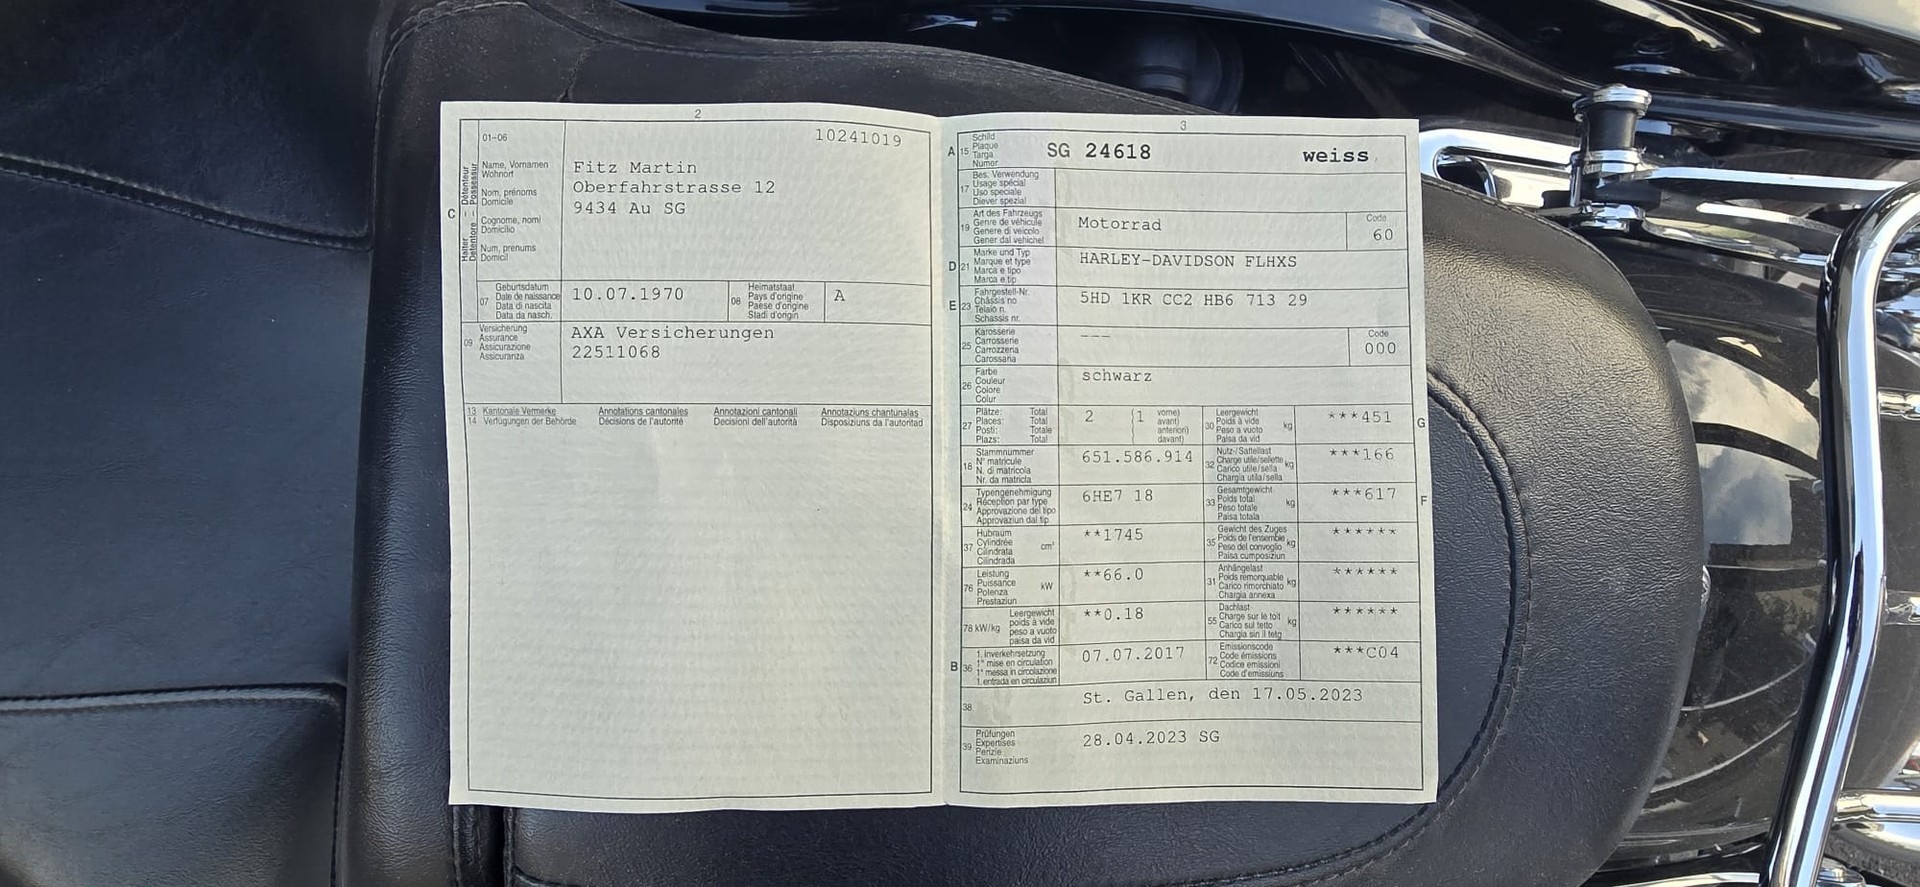 2
01-06
10241019
C
Halter Détenteur
Detentore Possessur
Name, Vornamen
Wohnort
Nom, prénoms
Domicile
Cognome, nomi
Domicilio
Num, prenums
Domicil
Fitz Martin
Oberfahrstrasse 12
9434 Au SG
07
Geburtsdatum
Date de naissance
Data di nascita
Data da nasch.
10.07.1970
08
Heimatstaat
Pays d'origine
Paese d'origine
Stadi d'origin
A
09
Versicherung
Assurance
Assicurazione
Assicuranza
AXA Versicherungen
22511068
13 Kantonale Vermerke Annotations cantonales Annotazioni cantonali Annotaziuns chantunalas
14 Verfügungen der Behörde Décisions de l'autorité Decisioni dell'autorità Disposiziuns da l'autoritad
3
A 15
Schild
Plaque
Targa
Numer
SG 24618 weiss
17
Bes. Verwendung
Usage spécial
Uso speciale
Diever spezial
19
Art des Fahrzeugs
Genre de véhicule
Genere di veicolo
Gener dal vehichel
Motorrad
Code
60
D 21
Marke und Typ
Marque et type
Marca e tipo
Marca e tip
HARLEY-DAVIDSON FLHXS
E 23
Fahrgestell-Nr.
Châssis no
Telaio n.
Schassis nr.
5HD 1KR CC2 HB6 713 29
25
Karosserie
Carrosserie
Carrozzeria
Carossaria
---
Code
000
26
Farbe
Couleur
Colore
Colur
schwarz
27
Plätze: Total
Places: Total
Posti: Totale
Plazs: Total
2 (1 vorne)
avant)
anteriori)
davant)
30
Leergewicht
Poids à vide
Peso a vuoto
Paisa da vid
kg
***451
G
18
Stammnummer
N° matricule
N. di matricola
Nr. da matricla
651.586.914
32
Nutz-/Sattellast
Charge utile/sellette
Carico utile/sella
Chargia utila/sella
kg
***166
24
Typengenehmigung
Réception par type
Approvazione del tipo
Approvaziun dal tip
6HE7 18
33
Gesamtgewicht
Poids total
Peso totale
Paisa totala
kg
***617
F
37
Hubraum
Cylindrée
Cilindrata
Cilindrada
cm³
**1745
35
Gewicht des Zuges
Poids de l'ensemble
Peso del convoglio
Paisa cumposiziun
kg
******
76
Leistung
Puissance
Potenza
Prestaziun
kW
**66.0
31
Anhängelast
Poids remorquable
Carico rimorchiato
Chargia annexa
kg
******
78 kW/kg
Leergewicht
poids à vide
peso a vuoto
paisa da vid
**0.18
55
Dachlast
Charge sur le toit
Carico sul tetto
Chargia sin il tetg
kg
******
B 36
1. Inverkehrsetzung
1re mise en circulation
1a messa in circolazione
1. entrada en circulaziun
07.07.2017
72
Emissionscode
Code émissions
Codice emissioni
Code d'emissiuns
***C04
38
St. Gallen, den 17.05.2023
39
Prüfungen
Expertises
Perizie
Examinaziuns
28.04.2023 SG